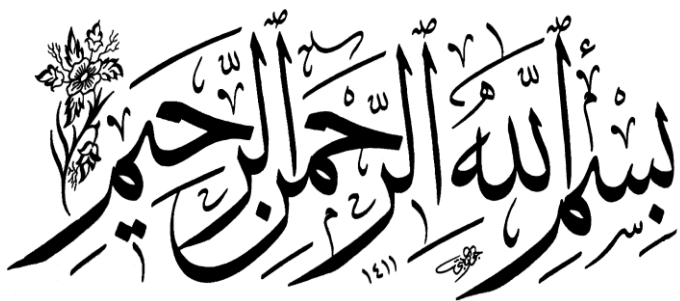 بِسْمِ اللّٰهِ الرَّحْمٰنِ الرَّحِيمِ
١٤١١